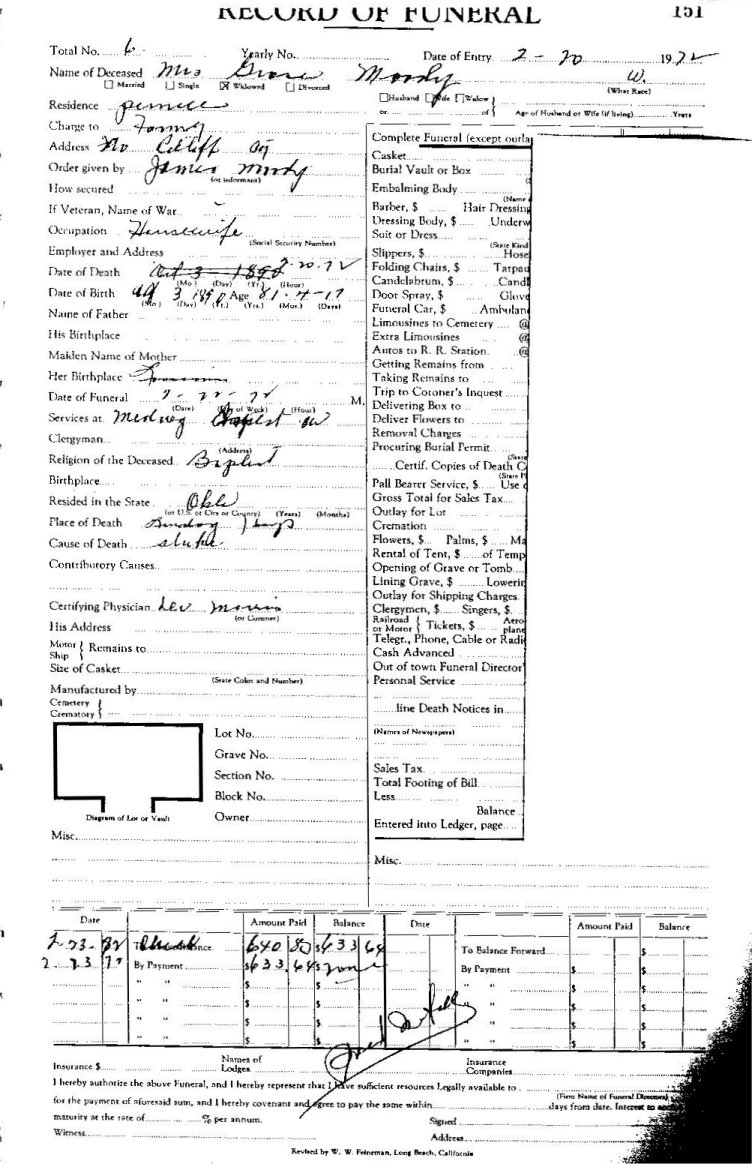 RECORD OF FUNERAL 151
Total No. 6 Yearly No. Date of Entry 2-20 1972
Name of Deceased Mrs Moody W.
Married Single Widowed Divorced Husband Wife Widow (What Race)
Residence or of Age of Husband or Wife (if living) Years
Charge to Family
Address No Ag
Order given by James Moody
(or informant)
How secured
If Veteran, Name of War
Occupation Housewife
(Social Security Number)
Employer and Address
Date of Death Oct 3 - 1890 2-20-72
(Mo.) (Day) (Yr.) (Hour)
Date of Birth 3 1890 Age 81-4-17
(Mo.) (Day) (Yr.) (Yrs.) (Mos.) (Days)
Name of Father
His Birthplace
Maiden Name of Mother
Her Birthplace
Date of Funeral 2-22-72 M.
(Date) (Day of Week) (Hour)
Services at
Clergyman
(Address)
Religion of the Deceased Baptist
Birthplace
Resided in the State Okla
(or U.S. or City or County) (Years) (Months)
Place of Death
Cause of Death
Contributory Causes
Certifying Physician Lev Morris
(or Coroner)
His Address
Motor Ship Remains to
Size of Casket
(State Color and Number)
Manufactured by
Cemetery
Crematory
Lot No.
Grave No.
Section No.
Block No.
Diagram of Lot or Vault Owner
Misc.
Complete Funeral (except outla
Casket
Burial Vault or Box
Embalming Body
(Name
Barber, $ Hair Dressing
Dressing Body, $ Underw
Suit or Dress
(State Kind
Slippers, $ Hose
Folding Chairs, $ Tarpau
Candelabrum, $ Candl
Door Spray, $ Glove
Funeral Car, $ Ambulan
Limousines to Cemetery @
Extra Limousines @
Autos to R. R. Station @
Getting Remains from
Taking Remains to
Trip to Coroner's Inquest
Delivering Box to
Deliver Flowers to
Removal Charges
Procuring Burial Permit
(State
Certif. Copies of Death C
(State P
Pall Bearer Service, $ Use o
Gross Total for Sales Tax
Outlay for Lot
Cremation
Flowers, $ Palms, $ Ma
Rental of Tent, $ of Temp
Opening of Grave or Tomb
Lining Grave, $ Lowerin
Outlay for Shipping Charges
Clergymen, $ Singers, $
Railroad or Motor Tickets, $ Aeroplane
Telegr., Phone, Cable or Radi
Cash Advanced
Out of town Funeral Director
Personal Service
line Death Notices in
(Names of Newspapers)
Sales Tax
Total Footing of Bill
Less
Balance
Entered into Ledger, page
Misc.
Date Amount Paid Balance Date Amount Paid Balance
640 $633 64 To Balance Forward $
By Payment $633.64 $ none By Payment $ $
" " $ $ " " $ $
" " $ $ " $ $
" " $ $ " " $ $
" " $ $ " " $ $
Insurance $ Names of Lodges Insurance Companies
I hereby authorize the above Funeral, and I hereby represent that I have sufficient resources Legally available to
(Firm Name of Funeral Directors)
for the payment of aforesaid sum, and I hereby covenant and agree to pay the same within days from date. Interest to
maturity at the rate of % per annum. Signed
Witness Address
Revised by W. W. Feineman, Long Beach, California